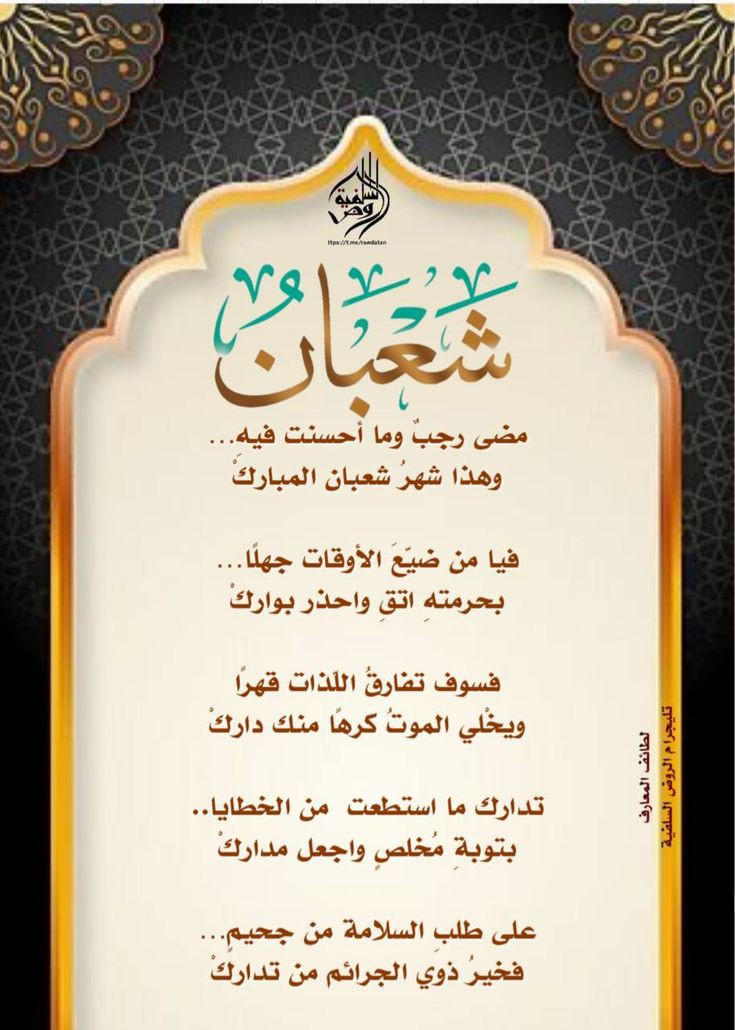 الروض السلفية
ttps://t.me/rawdatan
شَعْبَانُ
مضى رجبٌ وما أحسنت فيهِ...
وهذا شهرُ شعبان المباركْ
فيا من ضيّعَ الأوقات جهلًا...
بحرمتهِ اتقِ واحذر بواركْ
فسوف تفارقُ اللّذات قهرًا
ويخْلي الموتُ كرهًا منك داركْ
تدارك ما استطعت من الخطايا..
بتوبةِ مُخلصٍ واجعل مداركْ
على طلبِ السلامة من جحيمٍ...
فخيرُ ذوي الجرائم من تداركْ
لطائف المعارف
تليجرام الروض السلفية